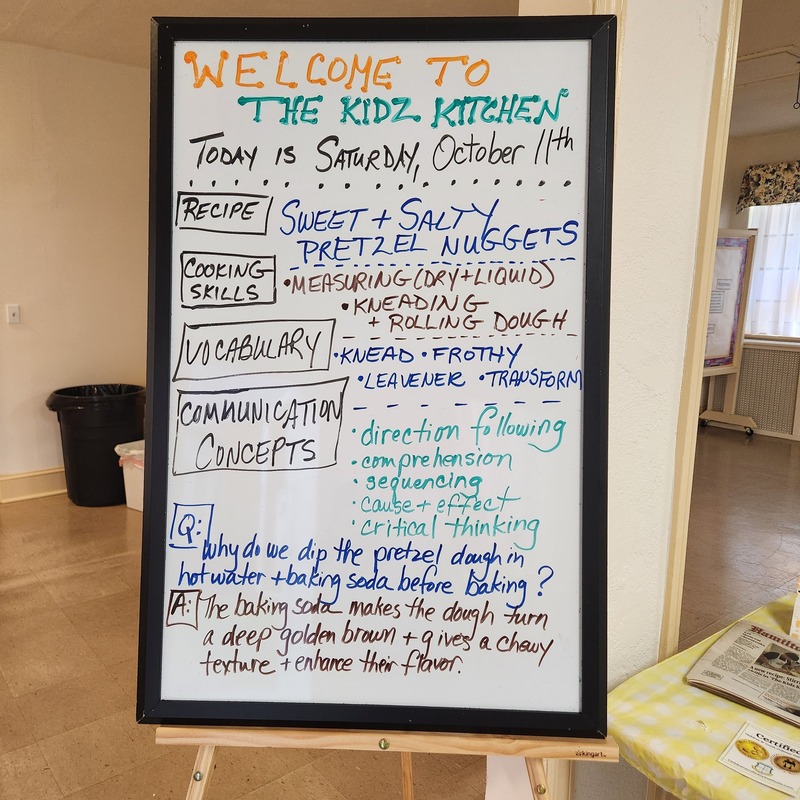 WELCOME TO
THE KIDZ KITCHEN
TODAY IS SATURDAY, October 11th
RECIPE
SWEET + SALTY
PRETZEL NUGGETS
COOKING
SKILLS
• MEASURING (DRY + LIQUID)
• KNEADING
+ ROLLING DOUGH
VOCABULARY
• KNEAD • FROTHY
• LEAVENER • TRANSFORM
COMMUNICATION
CONCEPTS
• direction following
• comprehension
• sequencing
• cause + effect
• critical thinking
Q:
Why do we dip the pretzel dough in
hot water + baking soda before baking?
A: The baking soda makes the dough turn
a deep golden brown + gives a chewy
texture + enhance their flavor.
kingart
Hamilto
Certifie